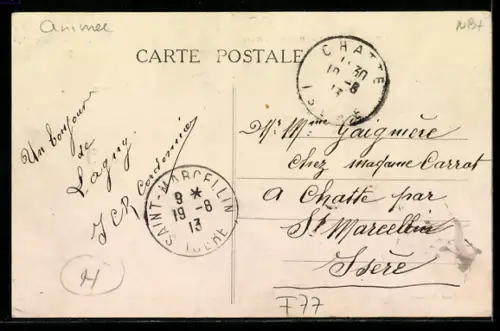 animée
NB+
CARTE POSTALE
CHATTE
11 30
19 -8
13
ISÈRE
Un bonjour
de
Lagny
JCR Cordonnier
SAINT-MARCELLIN
9 *
19 -8
13
ISÈRE
Mr Mme Gaignière
chez madame Carrat
A Chatte par
St Marcellin
Isère
F77